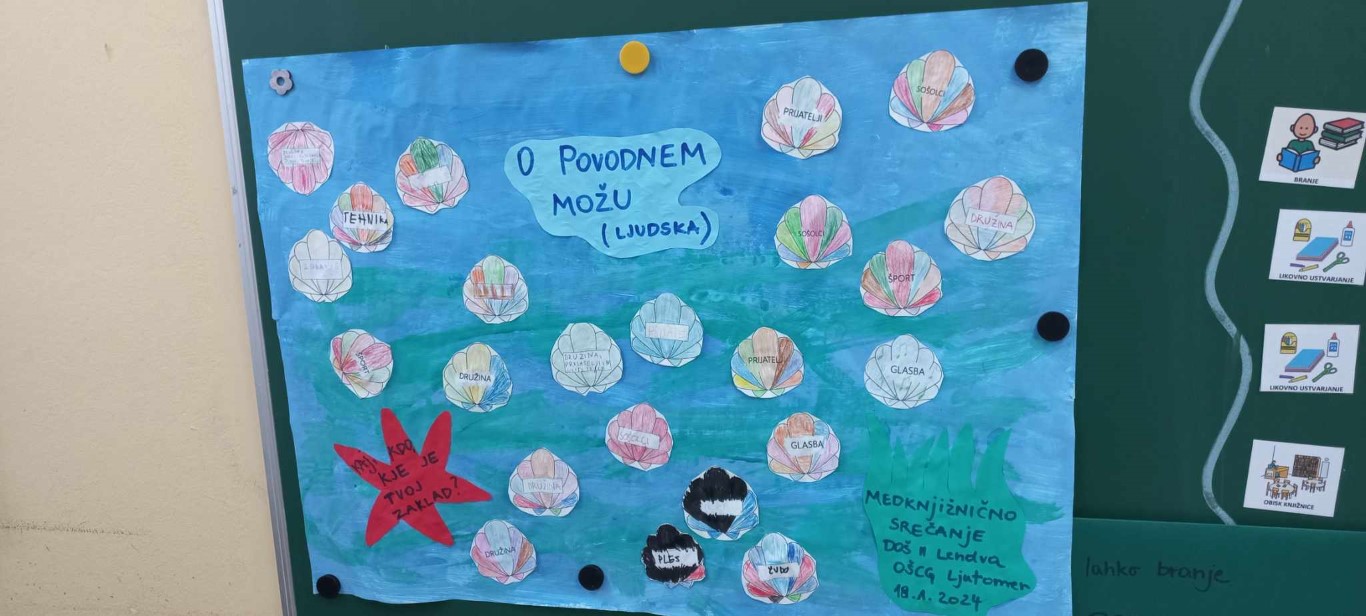 O POVODNEM
MOŽU
(LJUDSKA)
PRIJATELJI
SOŠOLCI
TEHNIKA
SOŠOLCI
DRUŽINA
ŠPORT
ŠPORT
DRUŽINA
DRUŽINA,
PRIJATELJI
GLASBA
SOŠOLCI
GLASBA
DRUŽINA
DRUŽINA
PLES
JUDO
KDO,
KJE JE
TVOJ
ZAKLAD?
MEDKNJIŽNIČNO
SREČANJE
DOŠ II Lendva
OŠCG Ljutomer
18.1.2024
BRANJE
LIKOVNO USTVARJANJE
LIKOVNO USTVARJANJE
OBISK KNJIŽNICE
lahko branje